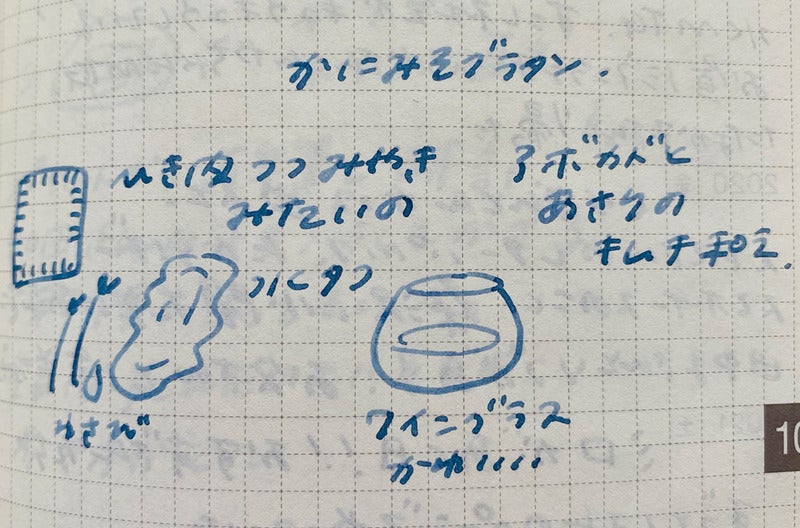 かにみそグラタン.
ひき肉つつみやき
みたいの
アボカドと
あさりの
キムチ和え.
わさび
ワイングラス
かわいい
10